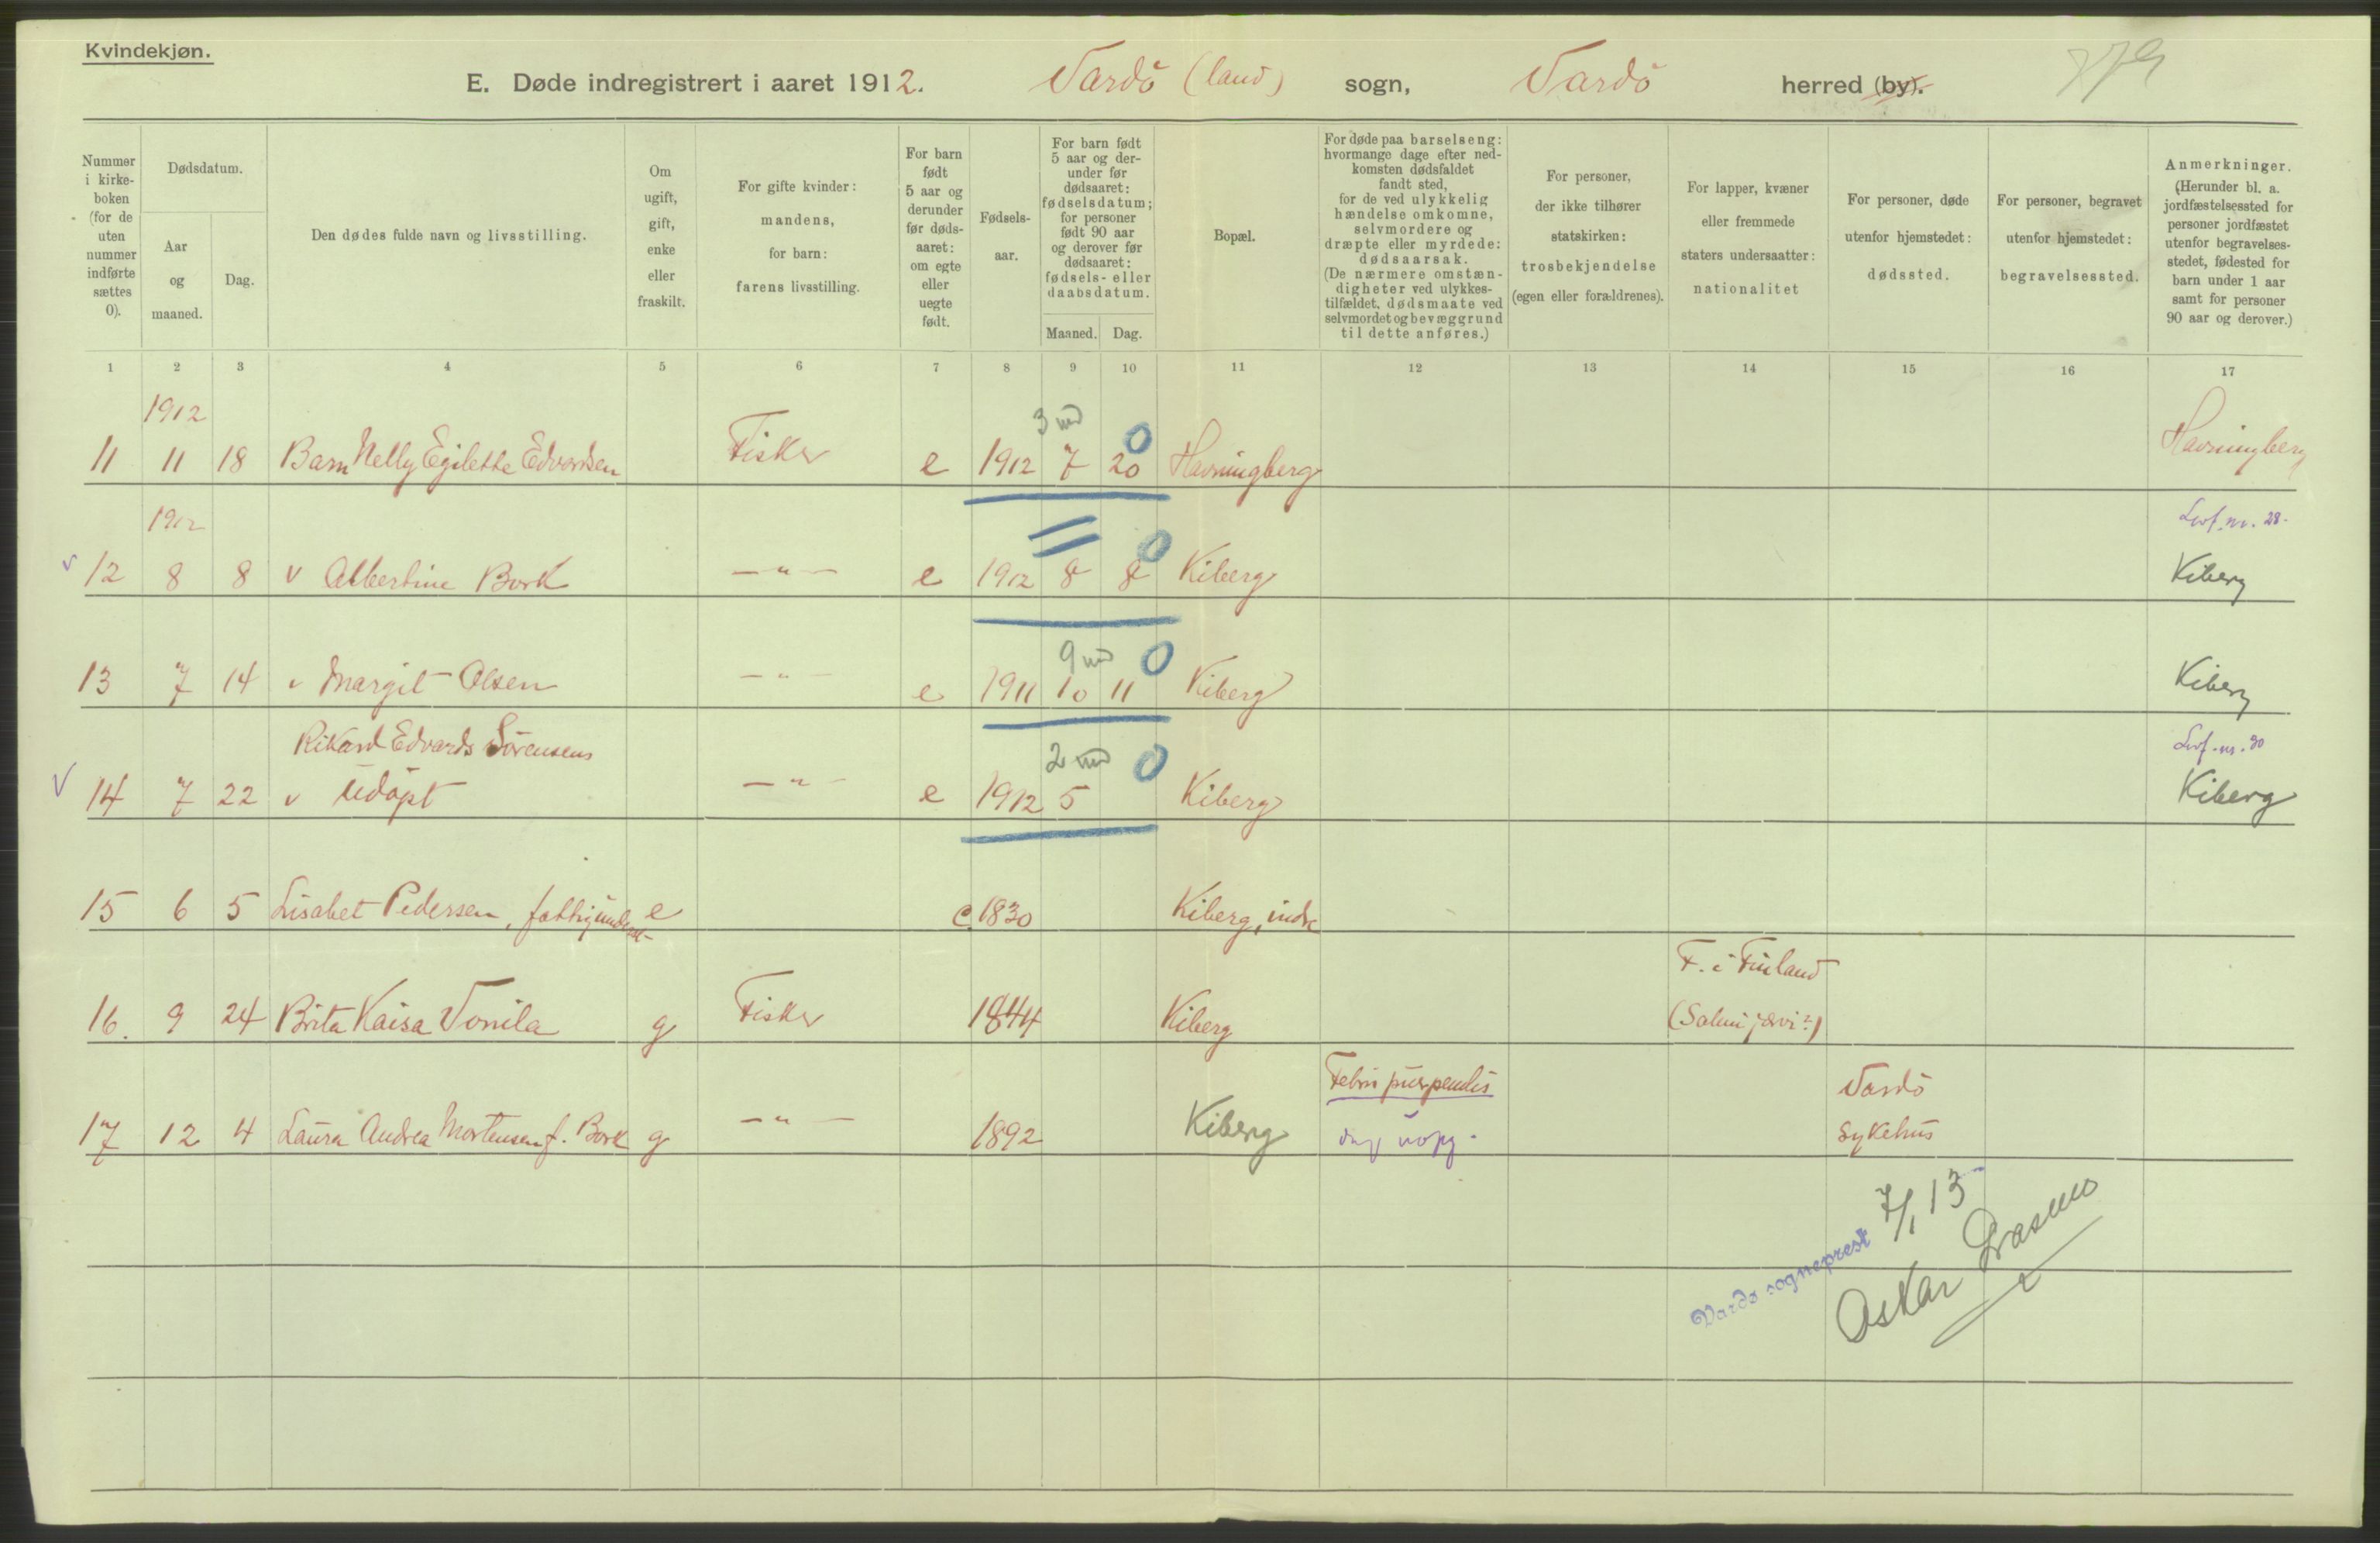 Kvindekjøn.
779
E. Døde indregistrert i aaret 1912. Vardö (land) sogn, Vardö herred (by).
Nummer
i kirke-
boken
(for de
uten
nummer
indførte
sættes
0).
Dødsdatum.
Aar
og
maaned.
Dag.
Den dødes fulde navn og livsstilling.
Om
ugift,
gift,
enke
eller
fraskilt.
For gifte kvinder:
mandens,
for barn:
farens livsstilling.
For barn
født
5 aar og
derunder
før døds-
aaret:
om egte
eller
uegte
født.
Fødsels-
aar.
For barn født
5 aar og der-
under før
dødsaaret:
fødselsdatum;
for personer
født 90 aar
og derover før
dødsaaret:
fødsels- eller
daabsdatum.
Maaned. Dag.
Bopæl.
For døde paa barselseng:
hvormange dage efter ned-
komsten dødsfaldet
fandt sted,
for de ved ulykkelig
hændelse omkomne,
selvmordere og
dræpte eller myrdede:
dødsaarsak.
(De nærmere omstæn-
digheter ved ulykkes-
tilfældet, dødsmaate ved
selvmordet og bevæggrund
til dette anføres.)
For personer,
der ikke tilhører
statskirken:
trosbekjendelse
(egen eller forældrenes).
For lapper, kvæner
eller fremmede
staters undersaatter:
nationalitet
For personer, døde
utenfor hjemstedet:
dødssted.
For personer, begravet
utenfor hjemstedet:
begravelsessted.
Anmerkninger.
(Herunder bl. a.
jordfæstelsessted for
personer jordfæstet
utenfor begravelses-
stedet, fødested for
barn under 1 aar
samt for personer
90 aar og derover.)
1 2 3 4 5 6 7 8 9 10 11 12 13 14 15 16 17
1912
3 md 0
11 11 18 Barn Nelly Egilette Edvardsen Fisker e 1912 7 20 Havningberg Havningberg
1912 Levf. nr. 28.
0
v 12 8 8 v Albertine Bork — " — e 1912 8 8 Kiberg Kiberg
9 md 0
13 7 14 v Margit Olsen — " — e 1911 10 11 Kiberg Kiberg
Rikard Edvards Sörensens 2 md 0 Levf. nr. 30
v 14 7 22 v udöpt — " — e 1912 5 Kiberg Kiberg
15 6 5 Lisabet Pedersen, fattigunderst. e c. 1830 Kiberg, indre
F. i Finland
16. 9 24 Brita Kaisa Vonila g Fisker 1844 Kiberg (Salmijærvi?)
Febris puerperalis Vardö
17 12 4 Laura Andrea Mortensen f. Bork g — " — 1892 Kiberg dag uopg. sykehus
Vardø sogneprest 7/1 13
Oskar